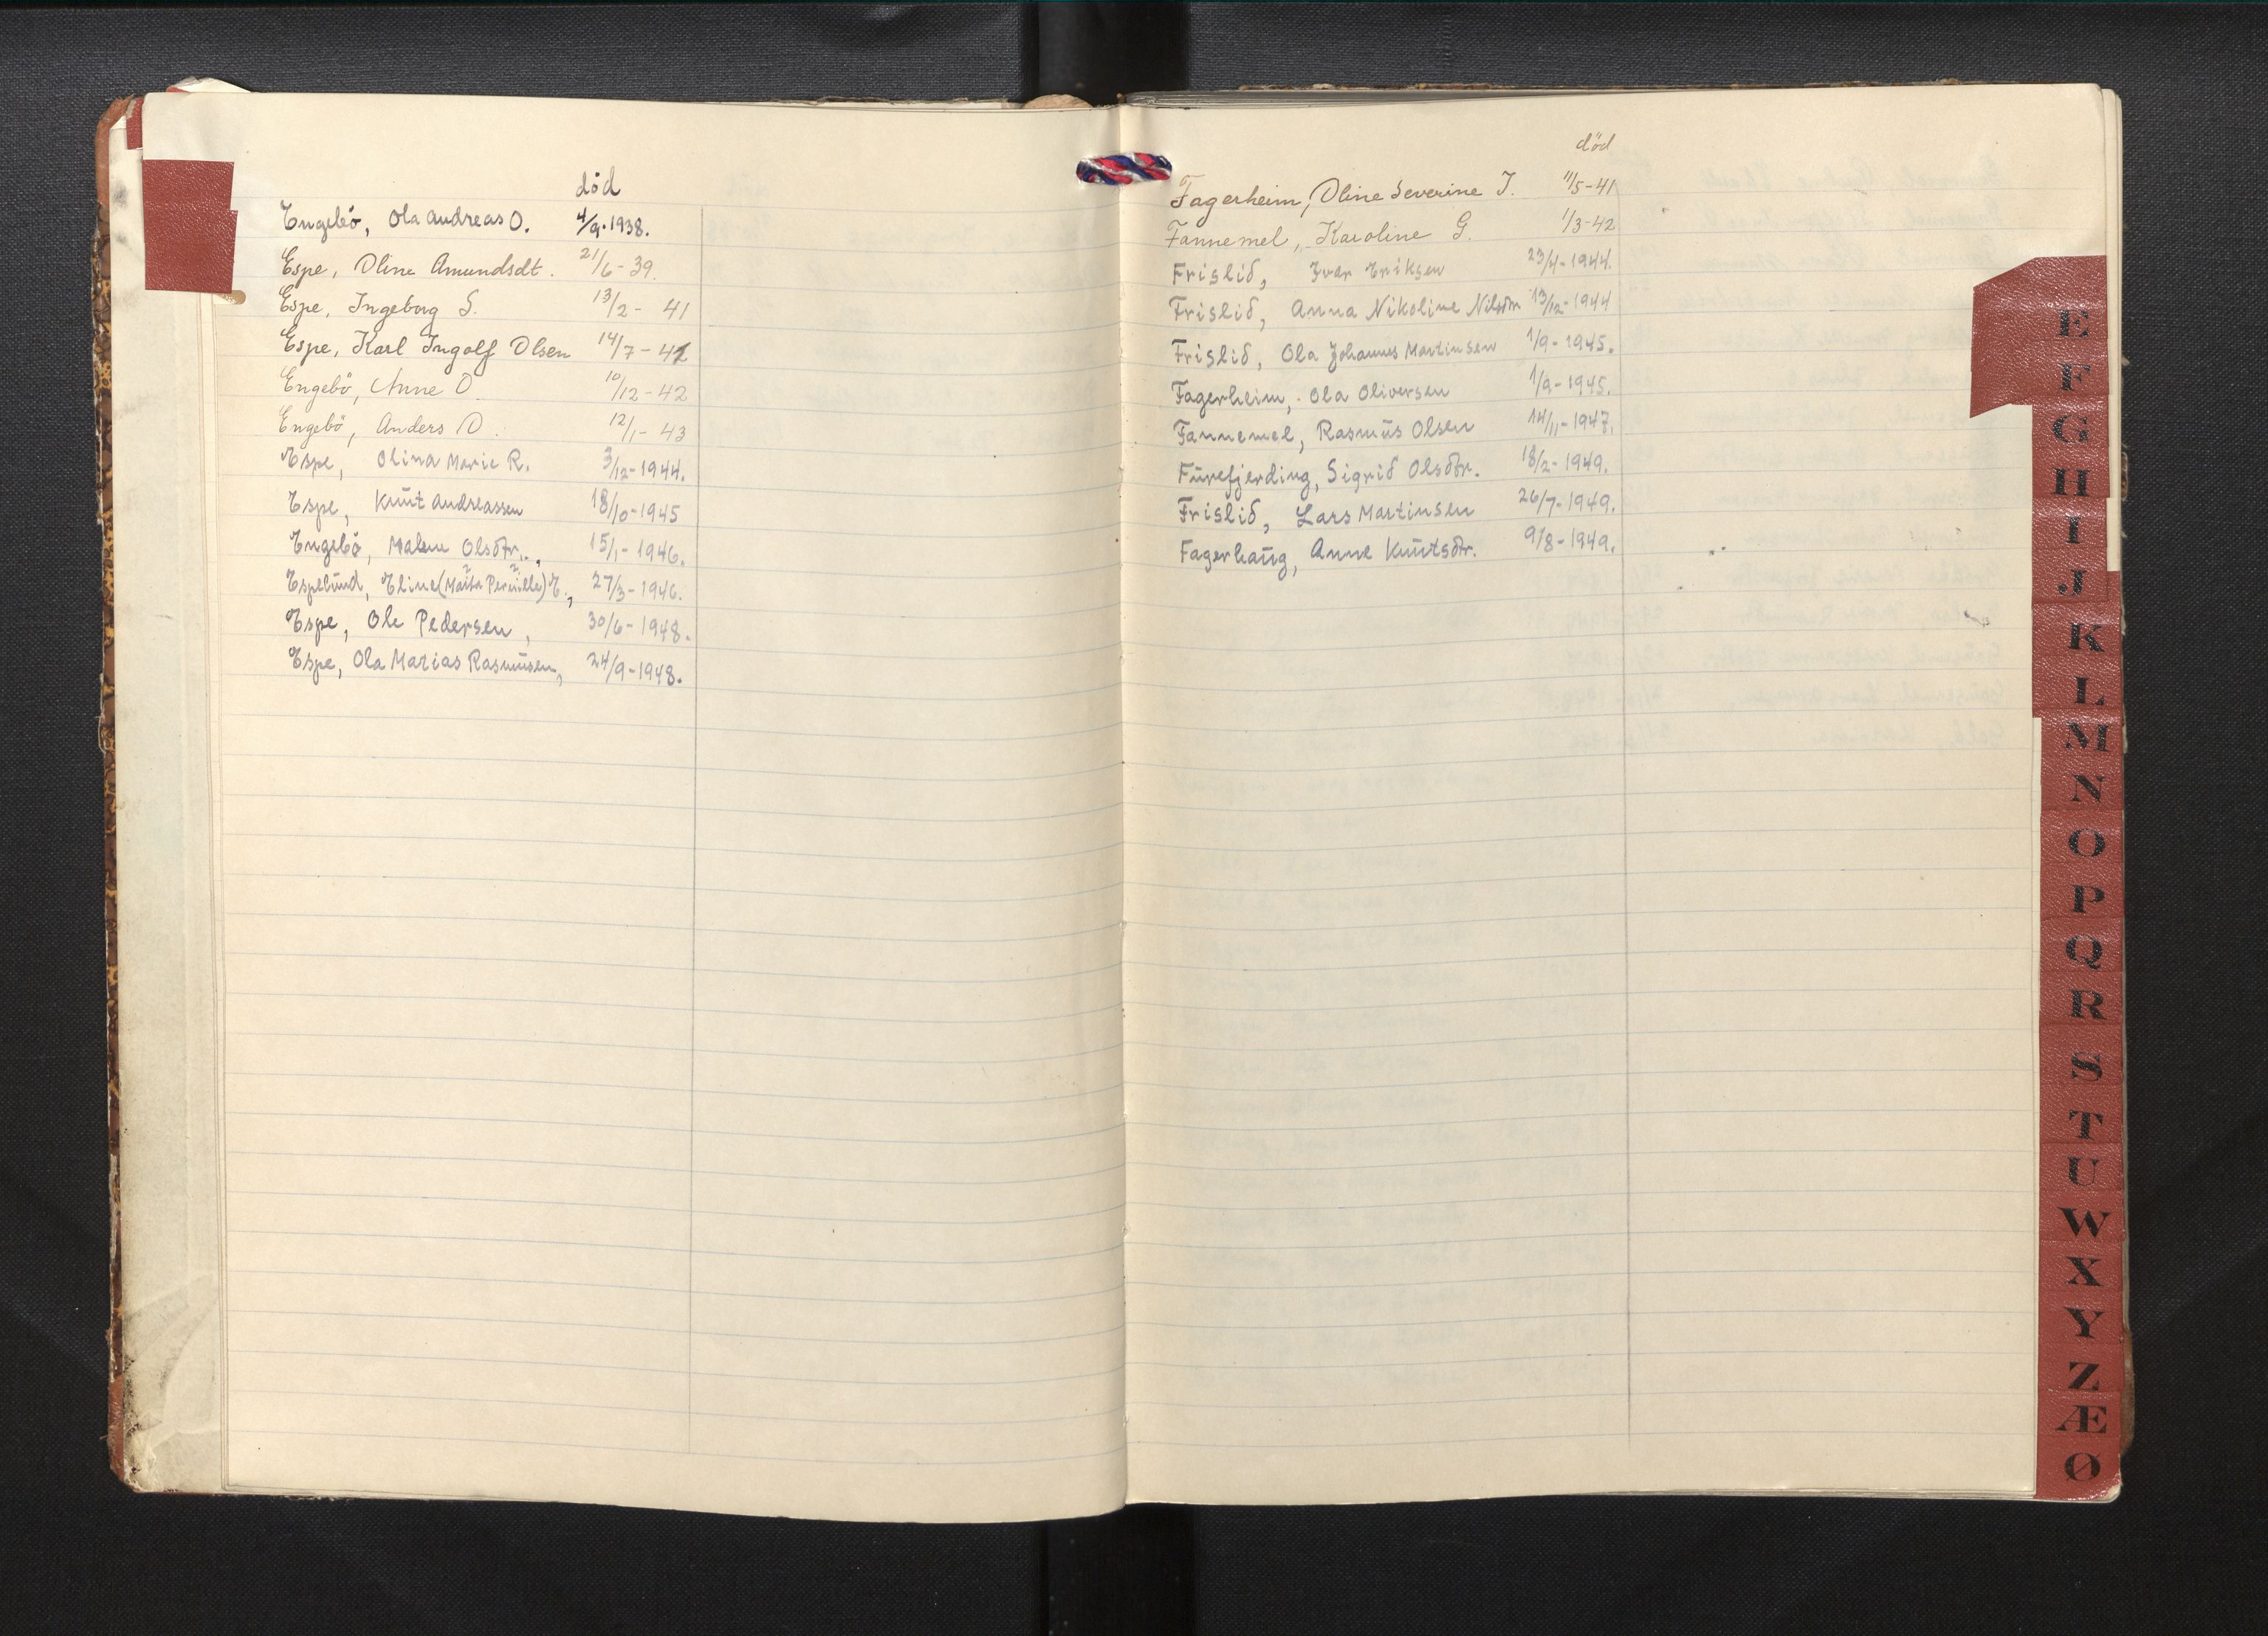 död
Engebö, Ola Andreas O. 4/9-1938.
Espe, Oline Amundsdt. 21/6-39.
Espe, Ingeborg S. 13/2-41
Espe, Karl Ingolf Olsen 14/7-42
Engebö, Anne O. 10/12-42
Engebö, Anders O. 12/1-43
Espe, Olina Marie R. 3/12-1944.
Espe, Knut Andreassen 18/10-1945
Engebö, Malene Olsdtr., 15/1-1946.
Espelund, Eline (Marta Pernille) E., 27/3-1946.
Espe, Ole Pedersen, 30/6-1948.
Espe, Ola Matias Rasmusen, 24/9-1948.
död
Fagerheim, Oline Severine J. 11/5-41
Fannemel, Karoline G. 1/3-42
Frislid, Ivar Eriksen 23/4-1944.
Frislid, Anna Nikoline Nilsdtr 13/12-1944
Frislid, Ola Johannes Martinsen 1/9-1945.
Fagerheim, Ola Oliversen 1/9-1945.
Fannemel, Rasmus Olsen 14/11-1947.
Furefjerding, Sigrid Olsdtr. 18/2-1949.
Frislid, Lars Martinsen 26/7-1949.
Fagerhaug, Anne Knutsdtr. 9/8-1949.
E
F
G
H
I
J
K
L
M
N
O
P
Q
R
S
T
U
W
X
Y
Z
Æ
Ø